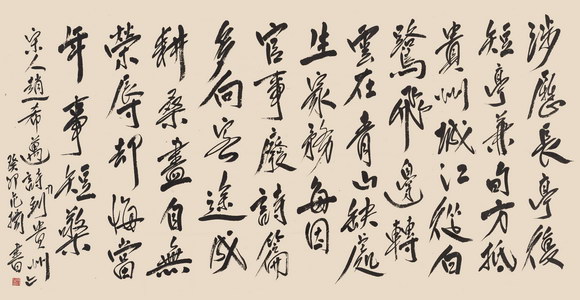 涉歷長亭復
短亭兼旬方抵
貴州城江從白
鷺飛邊轉
雲在青山缺處
生家務每因
官事廢詩篇
多向客途成
耕桑盡自無
榮辱却悔當
年事短檠
宋人趙希邁詩到貴州
癸卯書